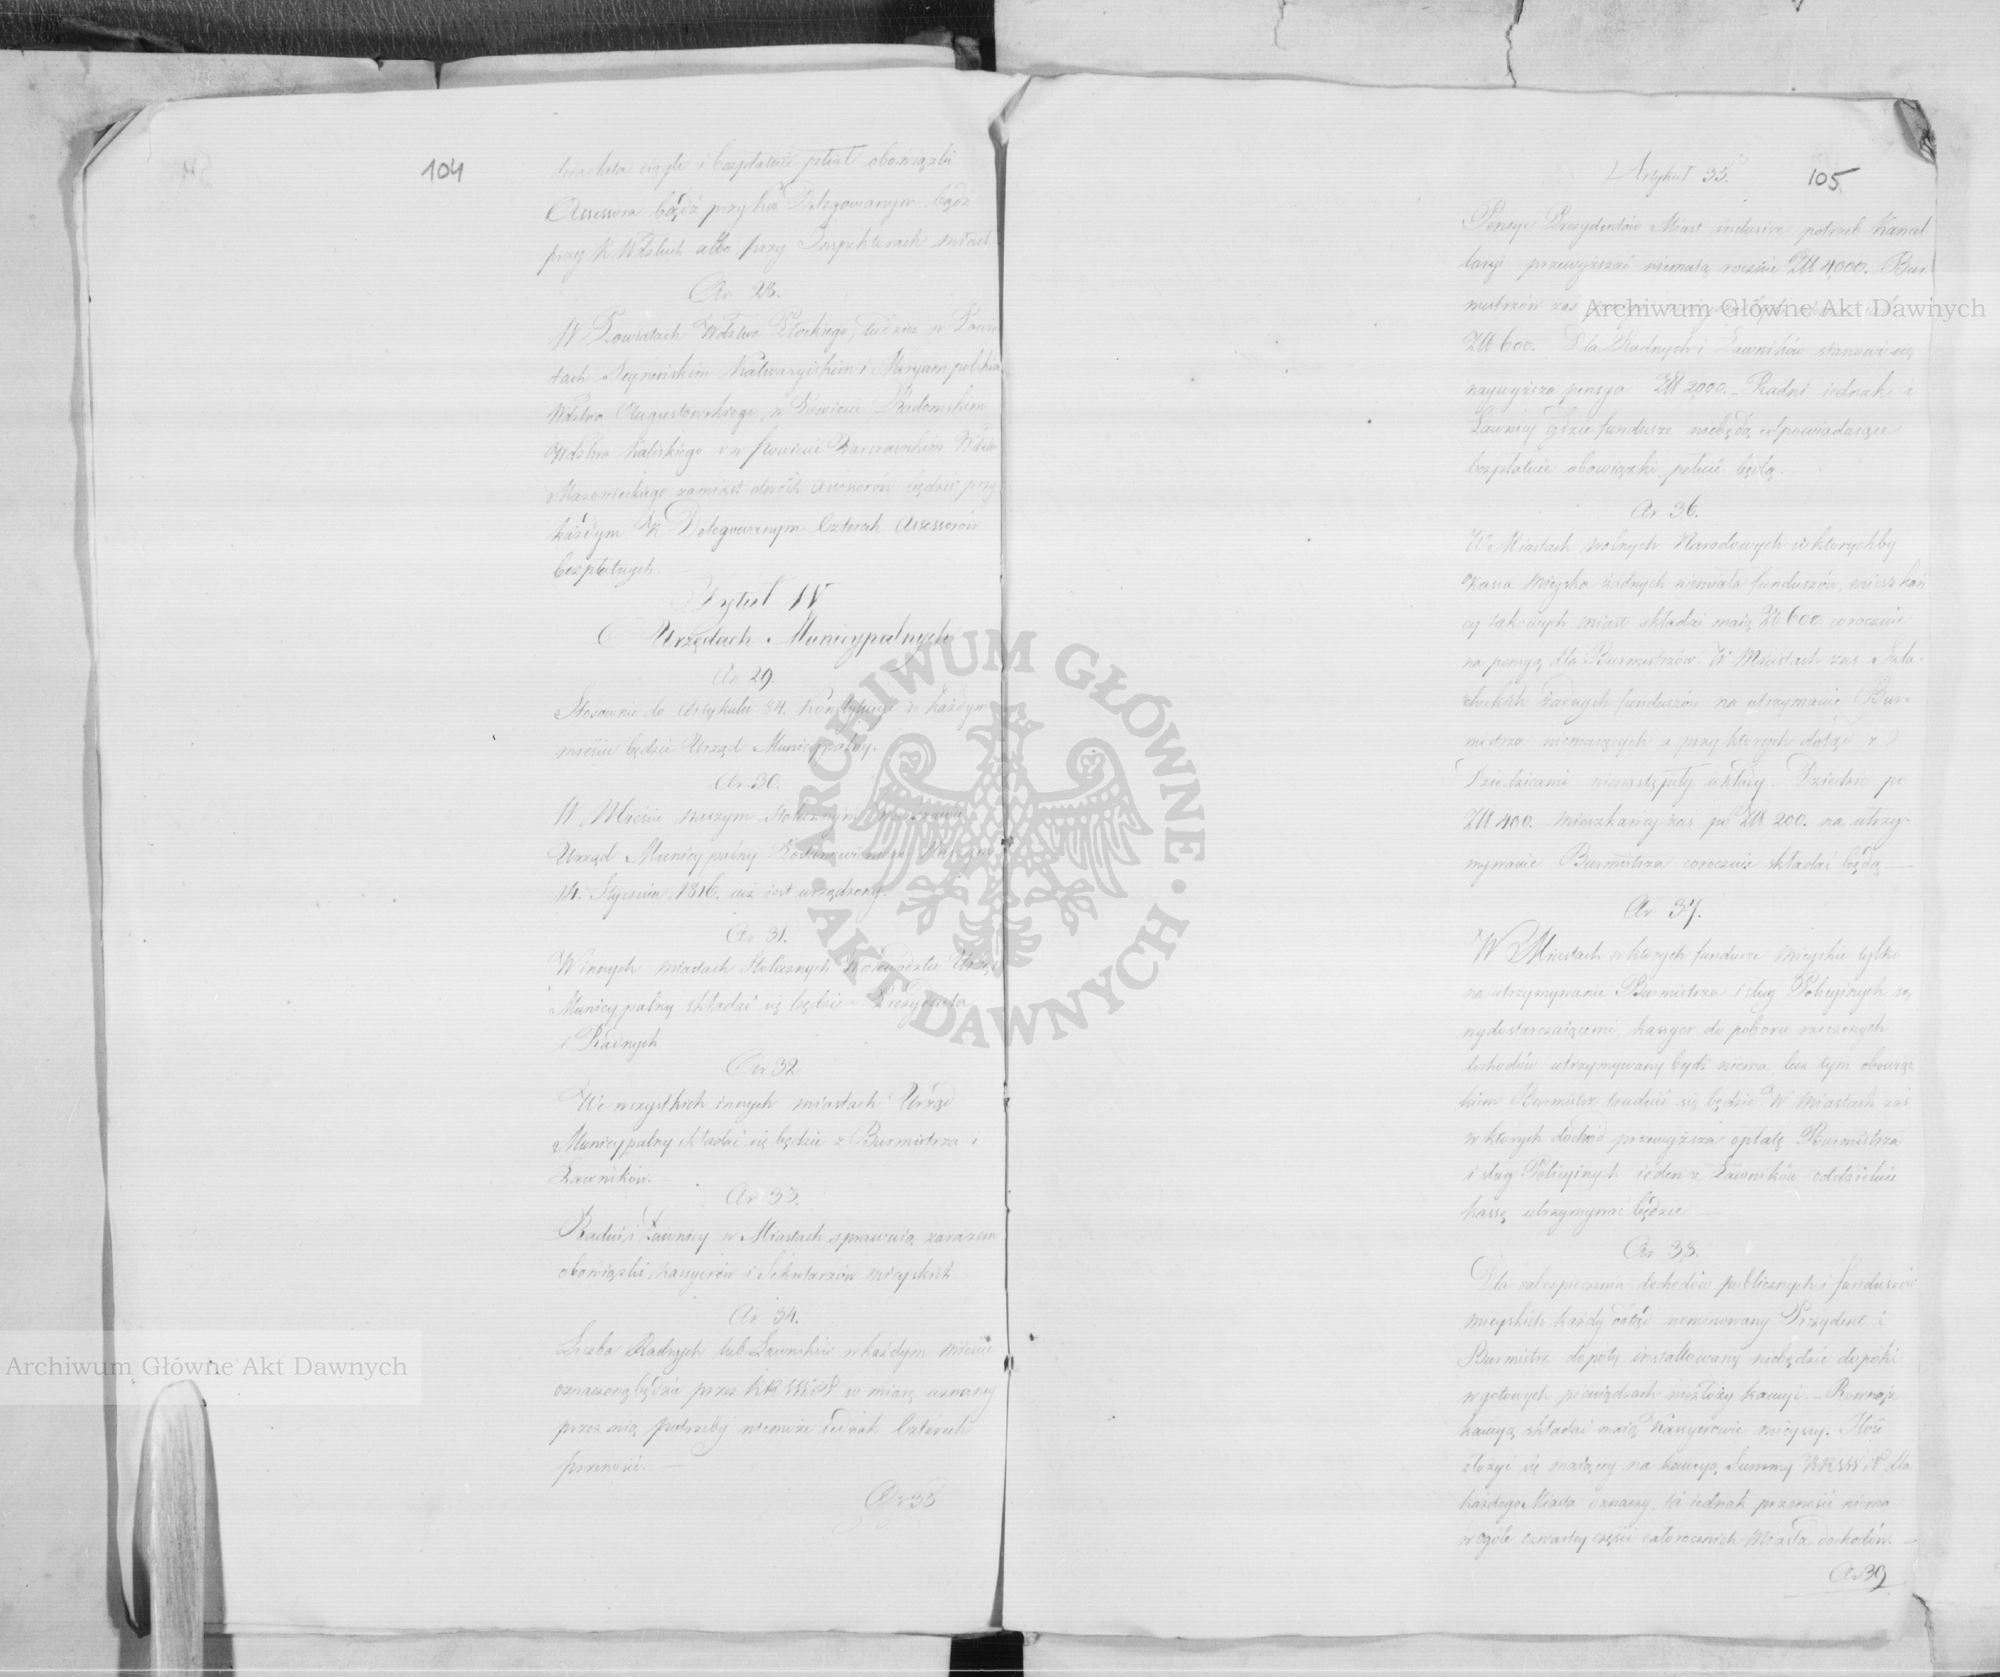 104
dwa lata ciągle i bezpłatnie pełnił obowiązki
Assessora bądź przy Kie Delegowanym bądz
przy K. Wdzkich albo przy Inspektorach miast
Ar 28.
W Powiatach Wdztwa Płockiego, tudzież w Powia
tach Seyneńskim Kalwaryiskim i Maryampolskim
Wdztwa Augustowskiego, w Powiecie Radomskim
Wdztwa Kaliskiego i w Powiecie Warszawskim Wdztwa
Mazowieckiego zamiast dwóch Assessorów będzie przy
każdym K Delegowanym Czterech Assessorów
bezpłatnych.
Tytuł IV
O Urzędach Municypalnych
Ar 29.
Stosownie do Artykułu 84. Konstytucyi w każdym
mieście będzie Urząd Municypalny.
Ar 30.
W Mieście naszym Stołecznym Warszawie
Urząd Municypalny Postanowieniem Naszym
14. Stycznia 1816. już iest urządzony.
Ar 31.
W innych miastach Stołecznych Woiewództw Urząd
Municypalny składać się będzie z Prezydenta
i Radnych
Ar 32
We wszystkich innych miastach Urząd
Municypalny składać się będzie z Burmistrza i
Ławników.
Ar 33.
Radni i Ławnicy w Miastach sprawuią zarazem
obowiązki kassyerów i Sekretarzów mieyskich
Ar 34.
Liczba Radnych lub Ławników w każdym mieście
oznaczoną będzie przez KRSWiP w miarę uznaney
przez nią potrzeby niemoże iednak Czterech
przenosić.
Ar 35
105
Artykuł 35.
Pensye Prezydentów Miast inclusive potrzeb Kancel
laryi przewyższać niemaią rocznie Zł 4000. Bur
mistrzów zaś
Zł 600. Dla Radnych i Ławników stanowi się
naywyższa pensya Zł 2000. Radni iednak i
Ławnicy gdzie fundusze niebędą odpowiadaiące
bezpłatnie obowiązki pełnić będą.
Ar 36.
W Miastach wolnych Narodowych w którychby
Kassa Mieyska żadnych niemiała funduszów, mieszkań
cy takowych miast składać maią Zł 600. corocznie
na pensyą dla Burmistrzów. W Miastach zaś Szla-
checkich żadnych funduszów na utrzymanie Bur-
mistrza niemaiących a przy których dotąd z
Dziedzicami nienastąpiły układy. Dziedzic po
Zł 400. mieszkańcy zaś po Zł 200. na utrzy-
mywanie Burmistrza corocznie składać będą
Ar 37.
W Miastach w których fundusze mieyskie tylko
na utrzymywanie Burmistrza i sług Policyinych są
wydostarczaiącemi, kassyer do poboru rzeczonych
dochodów utrzymywany bydź niema lecz tym obowiąz
kiem Burmistrz trudnić się będzie. W Miastach zaś
w których dochód przewyższa opłatę Burmistrza
i sług Policyinych ieden z Ławników oddzielnie
kassę utrzymywać będzie
Ar 38.
Dla zabezpieczenia dochodów publicznych i funduszów
mieyskich każdy odtąd nominowany Prezydent i
Burmistrz dopóty installowany niebędzie dopóki
w gotowych pieniądzach niezłoży kaucyi. Równąż
kaucyą składać maią Kassyerowie mieyscy. Ilość
złożyć się maiącey na kaucyą Summy KRSWiP dla
każdego Miasta oznaczy, ta iednak przenosić niema
w ogóle czwartey części całorocznich Miasta dochodów.
Ar 39
Archiwum Główne Akt Dawnych
Archiwum Główne Akt Dawnych
ARCHIWUM GŁÓWNE
AKT DAWNYCH